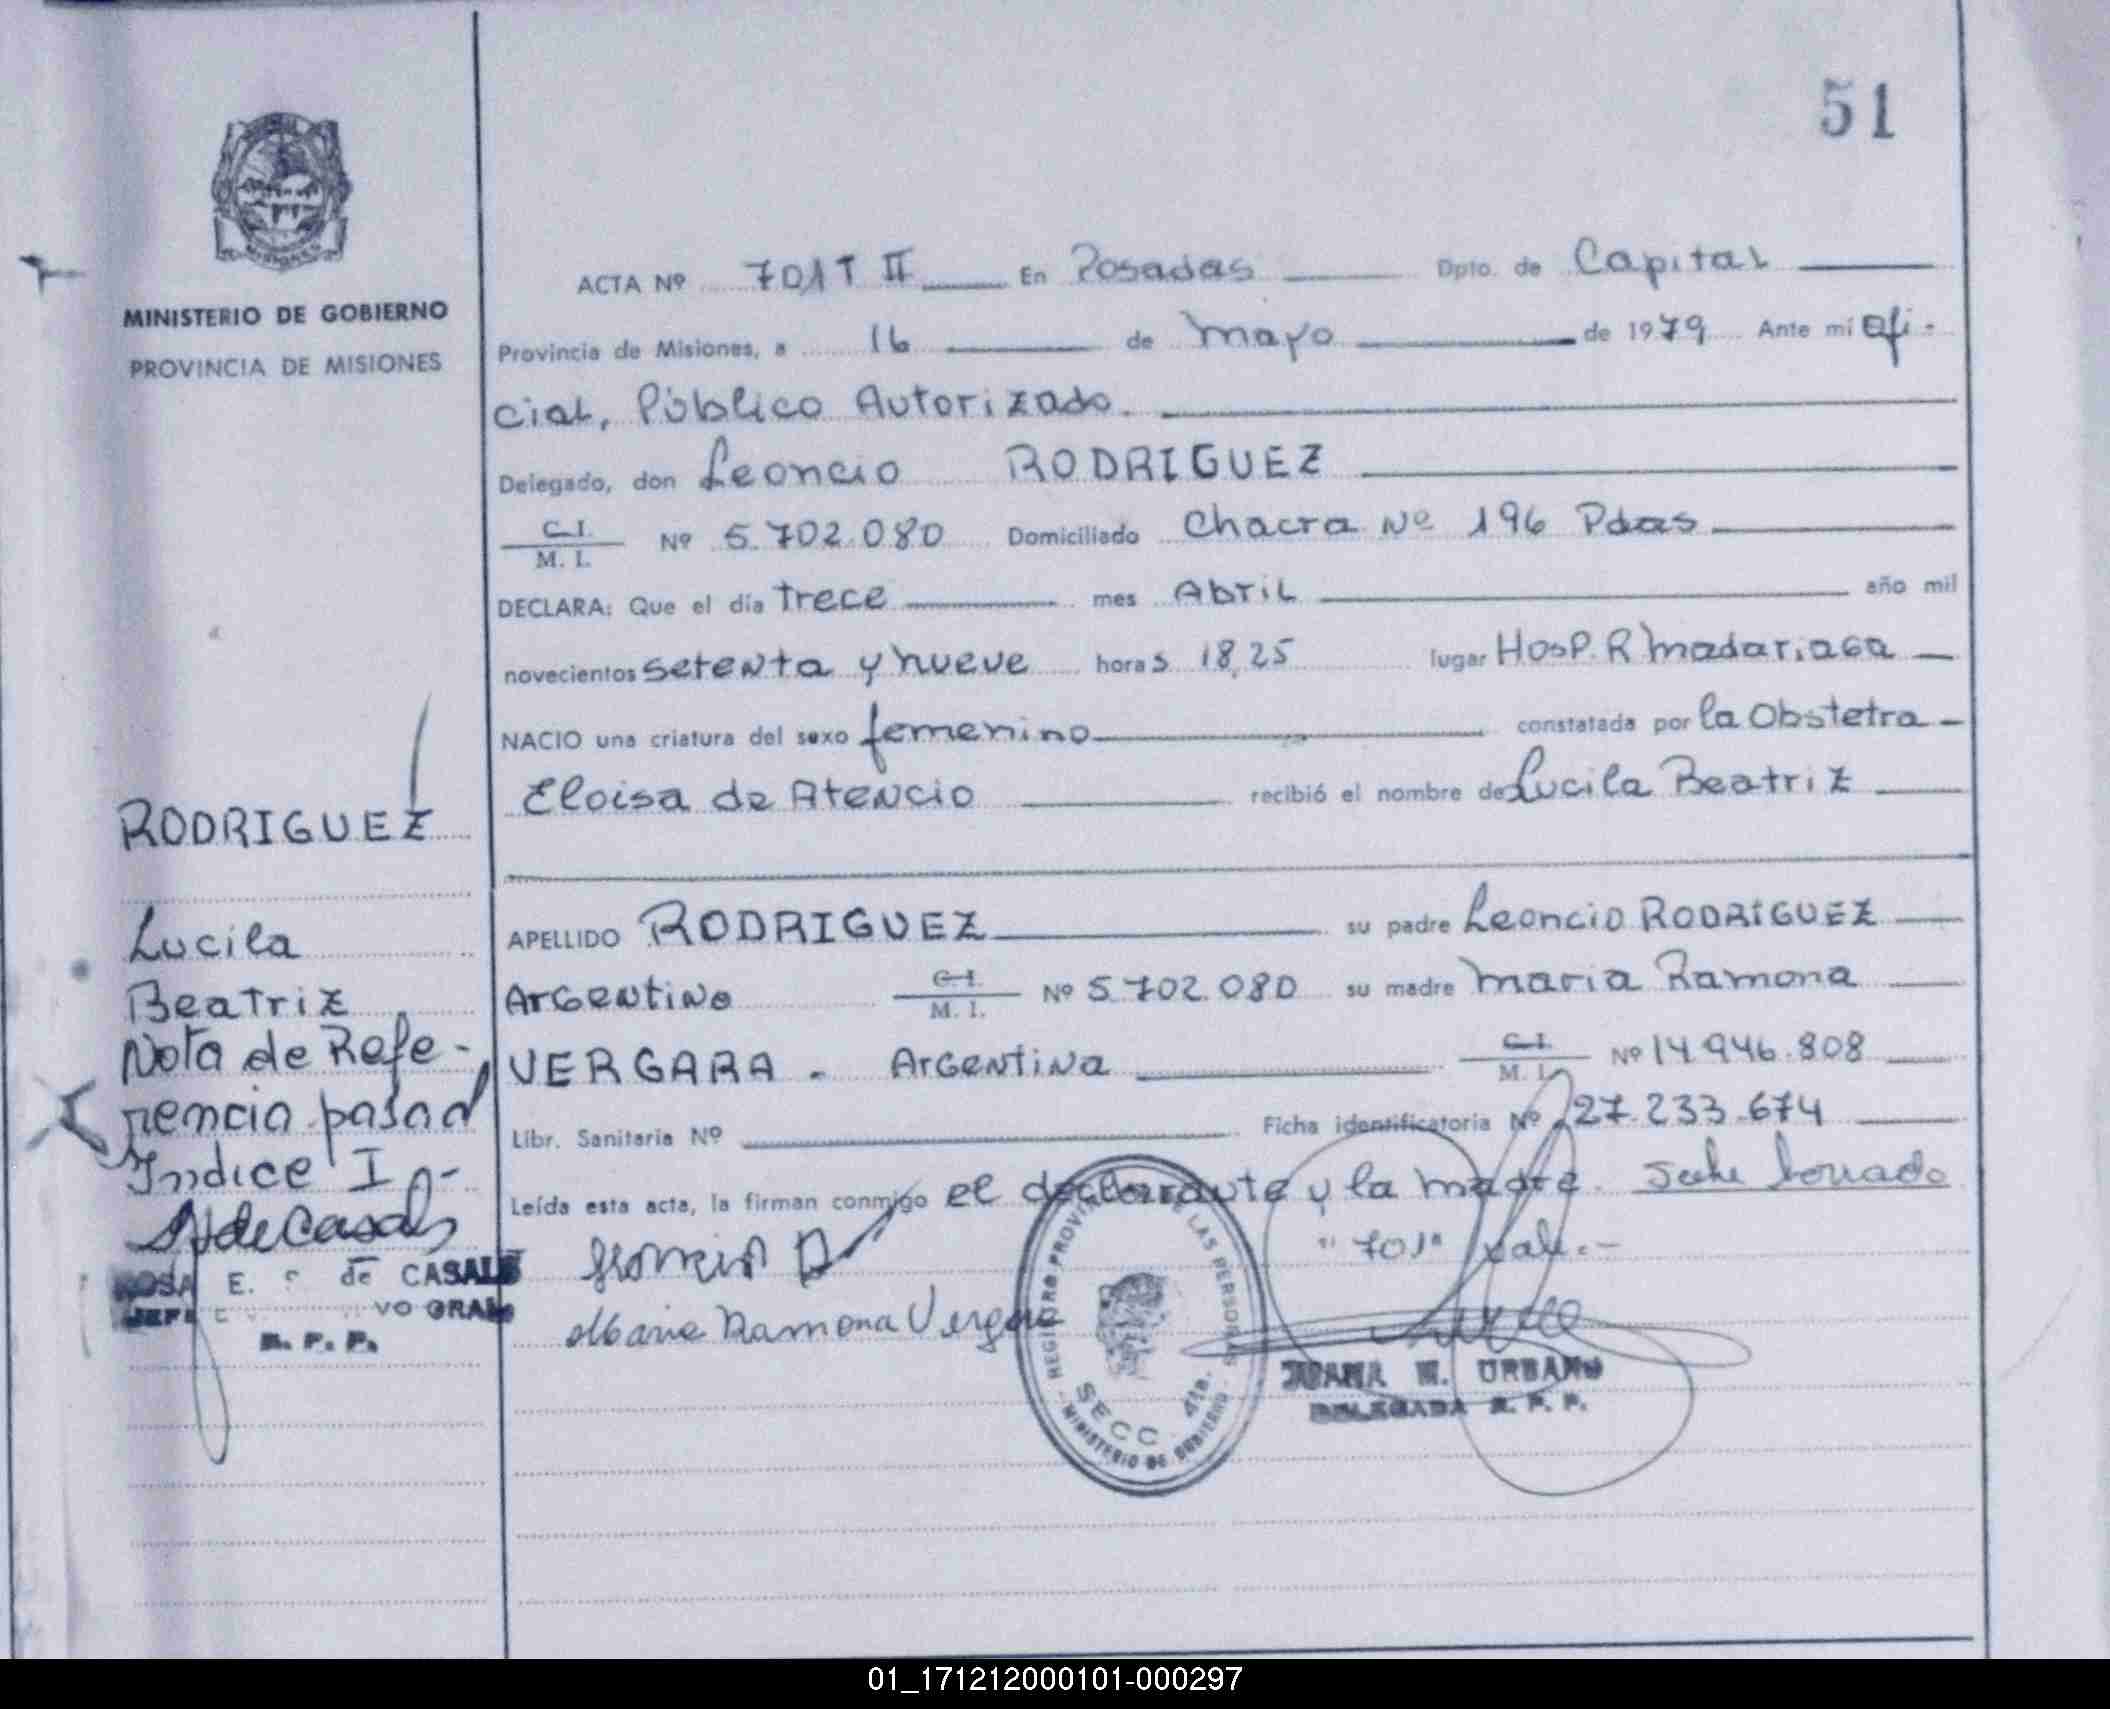 51
MINISTERIO DE GOBIERNO
PROVINCIA DE MISIONES
ACTA Nº 701 T II En Posadas Dpto. de Capital
Provincia de Misiones, a 16 de mayo de 1979 Ante mí Ofi-
cial, Público Autorizado.
Delegado, don Leoncio RODRIGUEZ
C.I. M. I. Nº 5.702.080 Domiciliado Chacra Nº 196 Pdas
DECLARA: Que el día trece mes Abril año mil
novecientos setenta y nueve horas 18,25 lugar Hosp. R Madariaga
NACIO una criatura del sexo femenino constatada por la Obstetra
Eloisa de Atencio recibió el nombre de Lucila Beatriz
APELLIDO RODRIGUEZ su padre Leoncio RODRIGUEZ
Argentino C.I. M. I. Nº 5.702.080 su madre Maria Ramona
VERGARA - Argentina C.I. M. I. Nº 14.946.808
Libr. Sanitaria Nº Ficha identificatoria Nº 27.233.674
Leída esta acta, la firman conmigo el declarante y la madre.
"701" vale.-
Maria Ramona Vergara
REGISTRO PROVINCIAL DE LAS PERSONAS
SECC. 4ta.
MINISTERIO DE GOBIERNO
JUANA URBANO
DELEGADA R. P. P.
RODRIGUEZ
Lucila
Beatriz
Nota de Refe-
rencia pasad
Indice I
ROSA E. de CASALS
VO GRAL
R. P. P.
01_171212000101-000297